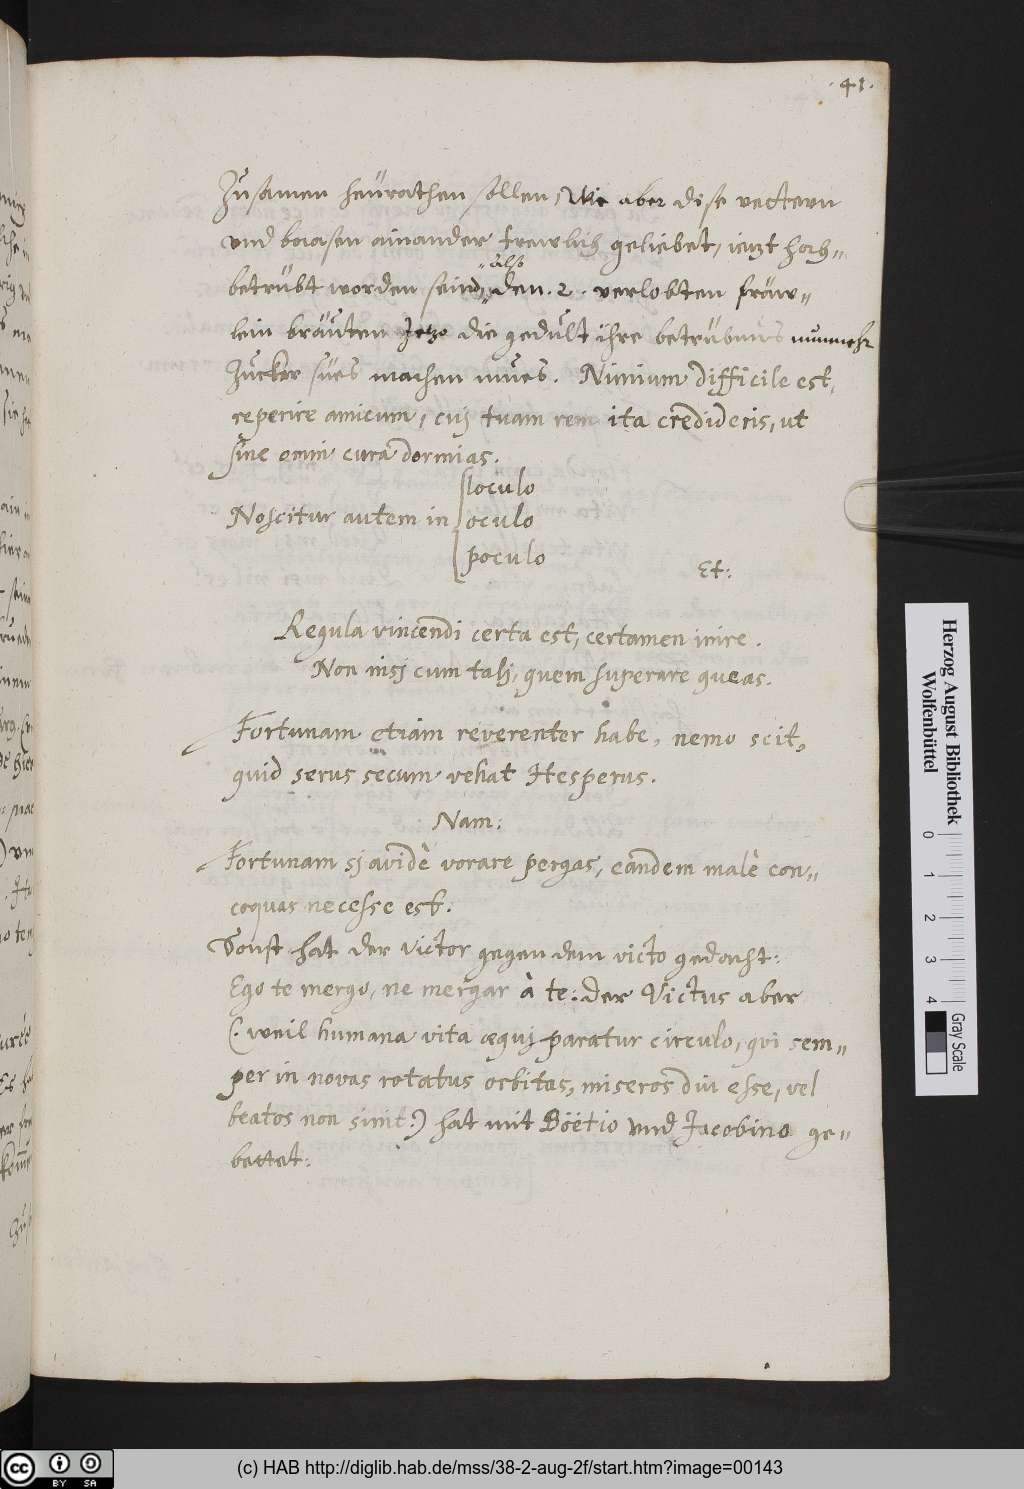 ·41·
Zusamen heürathen sollen, Wie aber dise vettern
vnd baasen ainander trewlich geliebet, ietzt hoch„
„also
betrübt worden seind,„ den .2. verlobten fräw„
lein bräuten Jetzo die gedült ihre betrübnus nunmehr
Zucker sües machen mues. Nimium difficile est,
reperire amicum, cuj tuam rem ita credideris, ut
sine omni cura dormias.
Noscitur autem in { loculo
oculo
poculo
Et:
Regula vincendi certa est, certamen inire.
Non nisj cum talj, quem superare queas.
Fortunam etiam reverenter habe, nemo scit,
quid serus secum vehat Hesperus.
Nam:
Fortunam sj avidè vorare pergas, eandem malè con„
coquas necesse est.
Sonst hat der Victor gegen dem victo gedacht:
Ego te mergo, ne mergar à te: der Victus aber
(: weil humana vita æquj paratur circulo, qvi sem„
per in novas rotatus orbitas, miseros diu esse, vel
beatos non sinit:) hat mit Böëtio vnd Jacobino ge„
bettet:
Herzog August Bibliothek
Wolfenbüttel
0 1 2 3 4
Gray Scale
cc BY SA
(c) HAB http://diglib.hab.de/mss/38-2-aug-2f/start.htm?image=00143